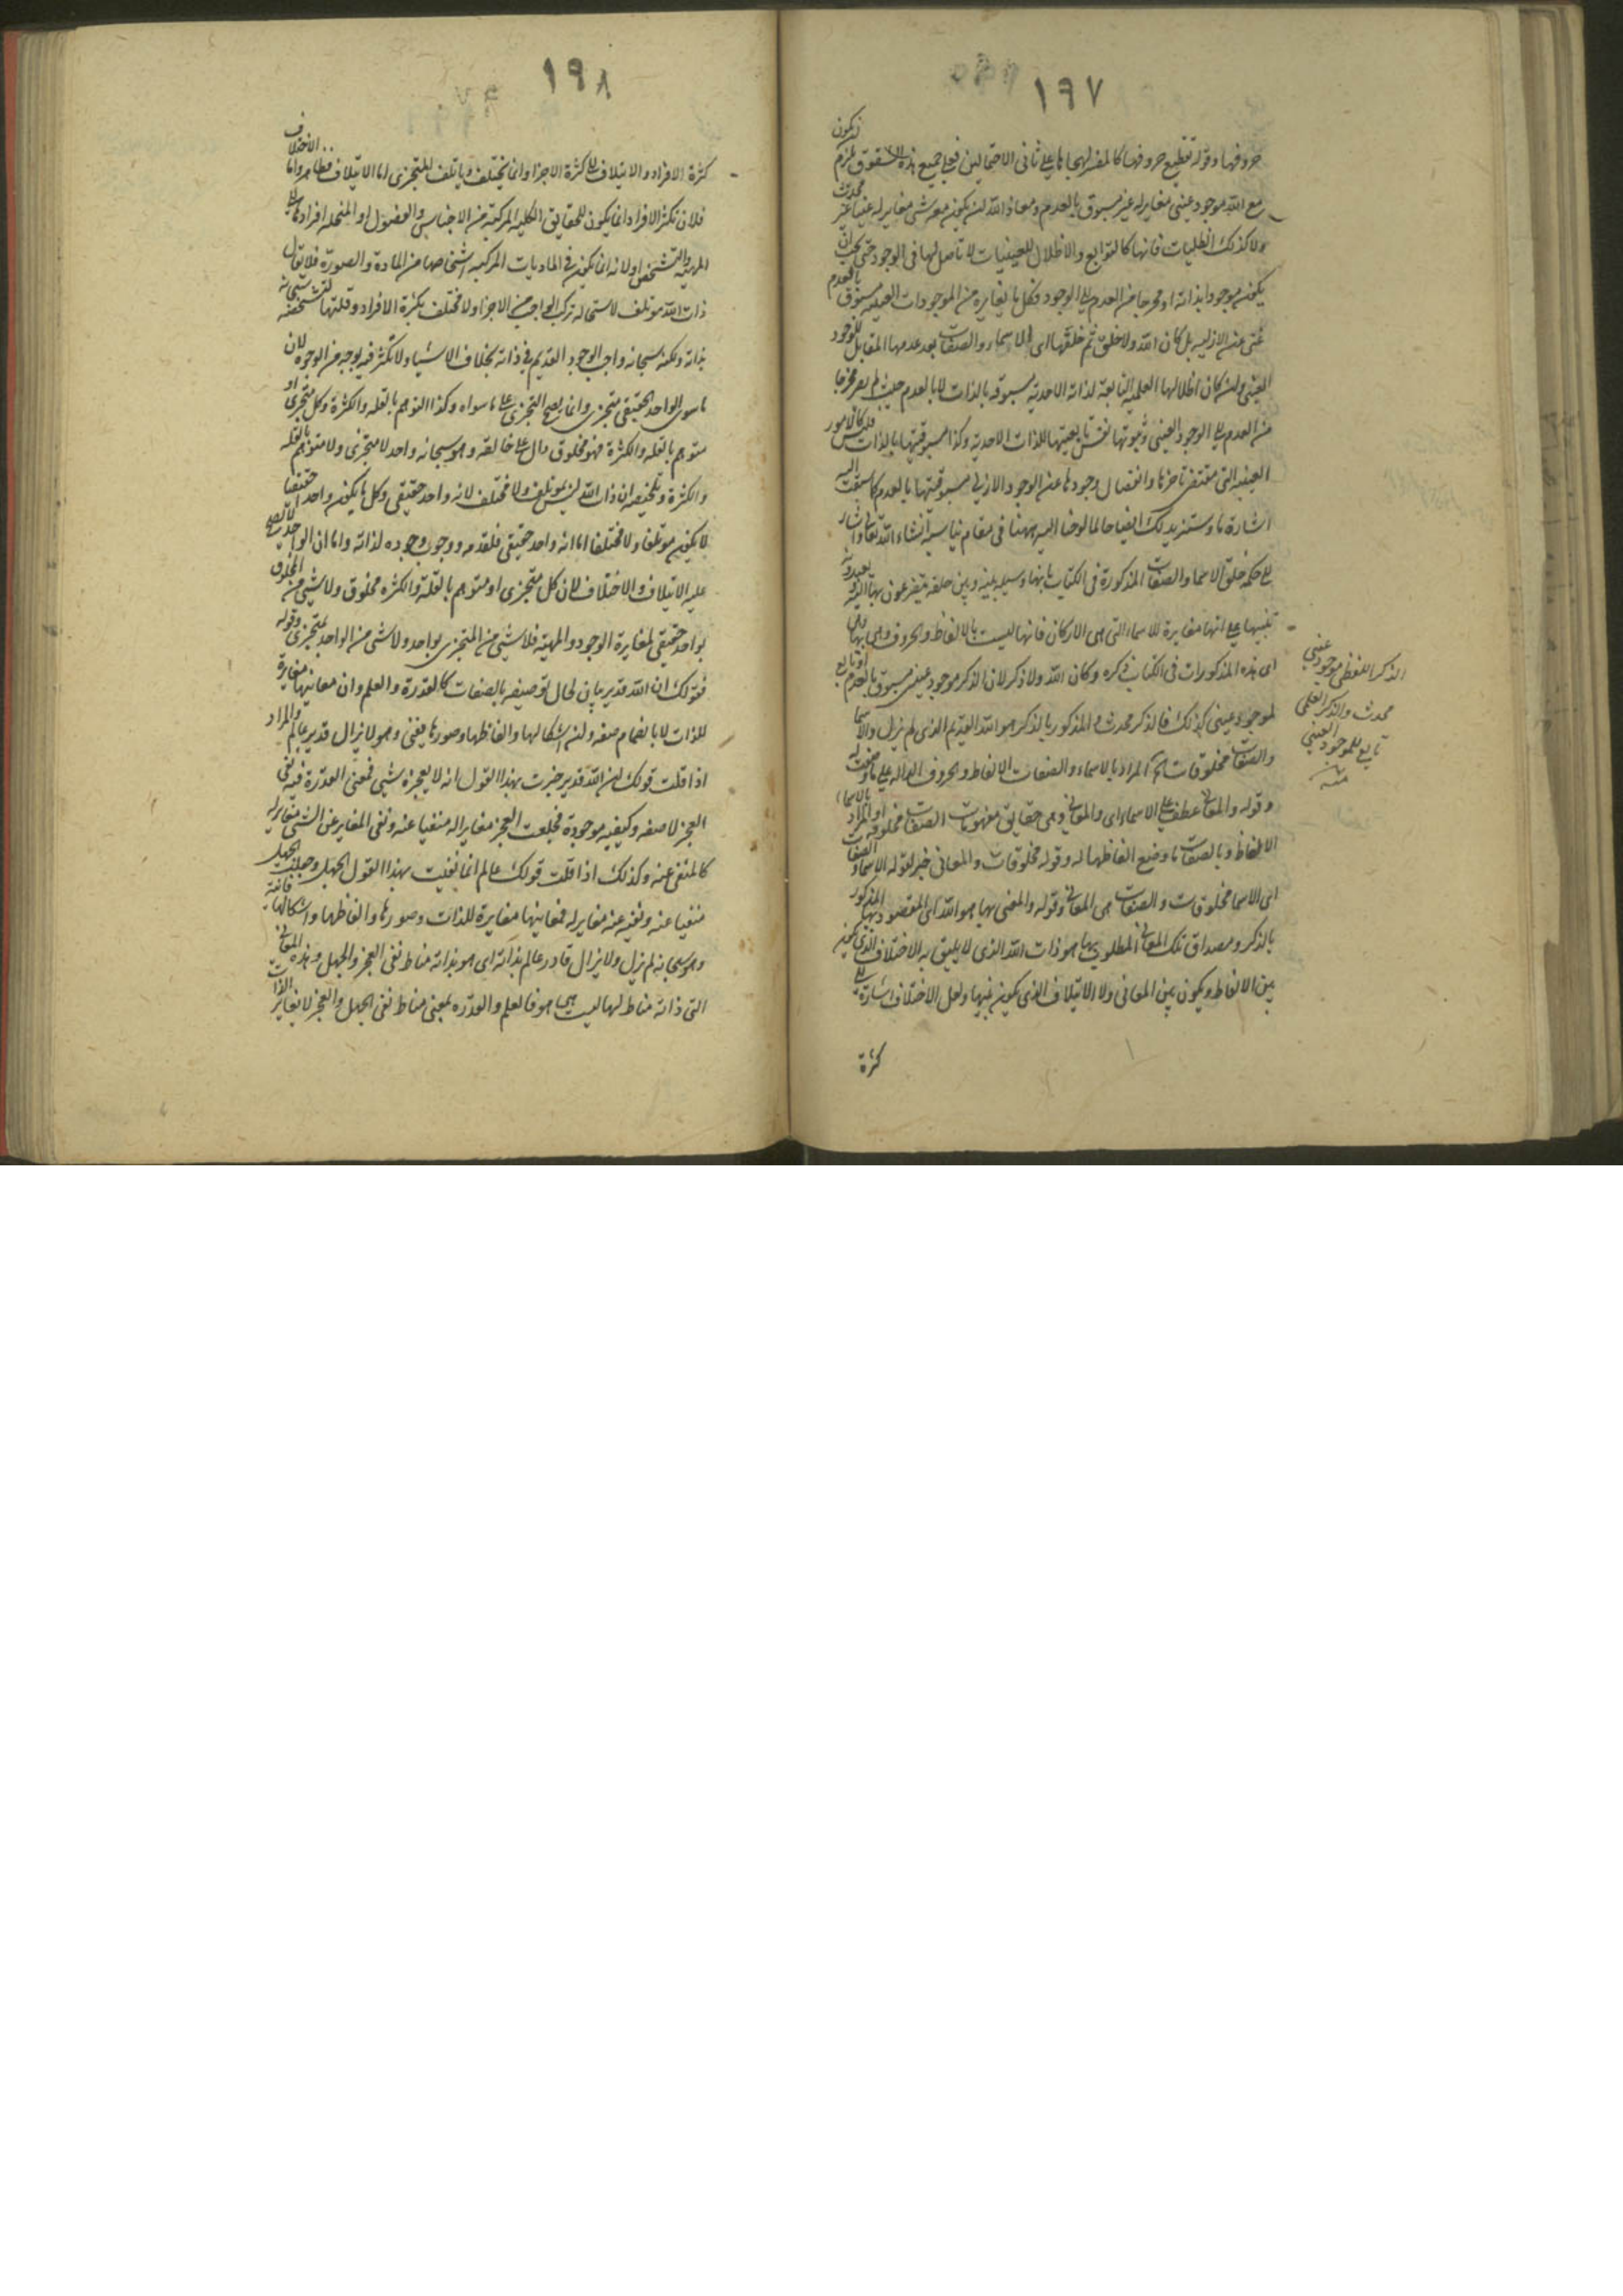 ١٩٧
حروفها وقوله تقطيع حروفها كالمفسر لهجاها على ثاني الاحتمالين فعلى جميع هذه الشقوق يلزم ان يكون
مع الله موجود عيني مغاير له غير مسبوق بالعدم ومعاذ الله ان يكون معه شي مغاير له عينا غير محدث
ولا كذلك الظليات فانها كالتوابع والاظلال للعينيات لا تأصل لها في الوجود حتى يجب ان
يكون موجودا بذاته او مخرجا من العدم الى الوجود فكل ما يغايره من الموجودات العينية مسبوق بالعدم
عيني عن الازلية بل كان الله ولا خلق ثم خلقها اى الاسماء والصفات بعد عدمها المقابل للوجود
العيني وان كان اظلالها العلمية التابعة لذاته الاحدية مسبوقة بالذات لا بالعدم حيث لم يصر مخرجا
من العدم الى الوجود العيني وثبوتها نفس تابعيتها للذات الاحدية وكذا مسبوقيتها بالذات فليس كالامور
العينية التي مقتضى تاخرها وانفصال وجودها عن الوجود الازلي مسبوقيتها بالعدم كما سبقت اليه
اشارة ما وستزيدلك ايضاحا لما لوحنا اليه ههنا في مقام يناسبه انشاء الله تعالى واشار
الى حكمة خلق الاسما والصفات المذكورة في الكتاب بانها وسيلة بينه وبين خلقه يتضرعون بها اليه ويعبدونه
تنبيها على انها مغايرة للاسماء التي هى الاركان فانها ليست بالالفاظ والحروف وهى بها وهى
اى هذه المذكورات في الكتاب ذكره وكان الله ولا ذكر لان الذكر موجود عيني مسبوق بالعدم او تابع
لموجود عيني كذلك فالذكر محدث والمذكور بالذكر هو الله القديم الذى لم يزل والاسما
والصفات مخلوقات الخ المراد بالاسماء والصفات الالفاظ والحروف الدالة على ما وضعت له
وقوله والمعاني عطف على الاسماء اى والمعاني وهى حقايق مفهومات الصفات مخلوقة او المراد بالاسماء
الالفاظ وبالصفات ما وضع الفاظها له وقوله مخلوقات والمعاني خبر لقوله الاسماء والصفات
اى الاسما مخلوقات والصفات هى المعاني وقوله والمعني بها هو الله اى المقصود بها المذكور
بالذكر ومصداق تلك المعاني المطلوب بها هو ذات الله الذى لا يليق به الاختلاف الذى يكون
بين الالفاظ ويكون بين المعاني ولا الائتلاف الذى يكون فيها ولعل الاختلاف اشارة الى
كثرة
الذكر اللفظي موجود عيني
محدث والذكر العلمى
تابع للموجود العيني
منه
١٩٨
كثرة الافراد والايتلاف الى كثرة الاجزا وانما يختلف ويأتلف المتجزى اما الايتلاف فظاهر واما الاختلاف
فلان تكثر الافراد انما يكون للحقايق الكلية المركبة من الاجناس والفصول او المنحلة افرادها الى
المهية والتشخص اولا نه انما يكون في الماديات المركبة اشخاصها من المادة والصورة فلا يقال
ذات الله موتلف لاستحالة تركب الواجب من الاجزا ولا مختلف بكثرة الافراد وقلتها لتشخصه
بذاته ولكنه سبحانه واجب الوجود القديم في ذاته بخلاف الاشيا ولا تكثر فيه بوجه من الوجوه لان
ما سوى الواحد الحقيقي متجزى وانما يصح التجزى على ما سواه وكذا التوهم بالقلة والكثرة وكل متجزى او
متوهم بالقلة والكثرة فهو مخلوق دال على خالقه وهو سبحانه واحد لا متجزى ولا متوهم بالقلة
والكثرة وتلخيصه ان ذات الله ليس بموتلف ولا مختلف لانه واحد حقيقي وكل ما يكون واحدا حقيقيا
لا يكون موتلفا ولا مختلفا اما انه واحد حقيقي فلقدمه ووجوب وجوده لذاته واما ان الواحد لا يصح
عليه الايتلاف والاختلاف لان كل متجزى او متوهم بالقلة والكثرة مخلوق ولا شي من المخلوق
بواحد حقيقي لمغايرة الوجود والمهية فلا شي من المتجزى بواحد ولا شي من الواحد بمتجزى وقوله
فقولك ان الله قدير بيان لحال توصيفه بالصفات كالقدرة والعلم وان معانيها مغايرة
للذات لا بانضمام صفة وان اشكالها والفاظها وصورها يفني وهو لا يزال قدير عالم والمراد
اذا قلت قولك ان الله قدير خبرت بهذا القول انه لا يعجزه شيى فمعنى القدرة فيه نفى
العجز لا صفة وكيفية موجودة فجعلت العجز مغايرا له منفيا عنه ونفى المغاير عن الشى مغاير له
كالمنفى عنه وكذلك اذا قلت قولك عالم انما نفيت بهذا القول الجهل وجعلت الجهل
منفيا عنه ونفيه عنه مغاير له فمعانيها مغايرة للذات وصورها والفاظها واشكالها فانية
وهو سبحانه لم يزل ولا يزال قادر عالم بذاته اى هو بذاته مناط نفى العجز والجهل وهذه المعاني
التى ذاته مناط لها ليست هى هو فالعلم والقدرة بمعنى مناط نفى الجهل والعجز لا يغاير الذات